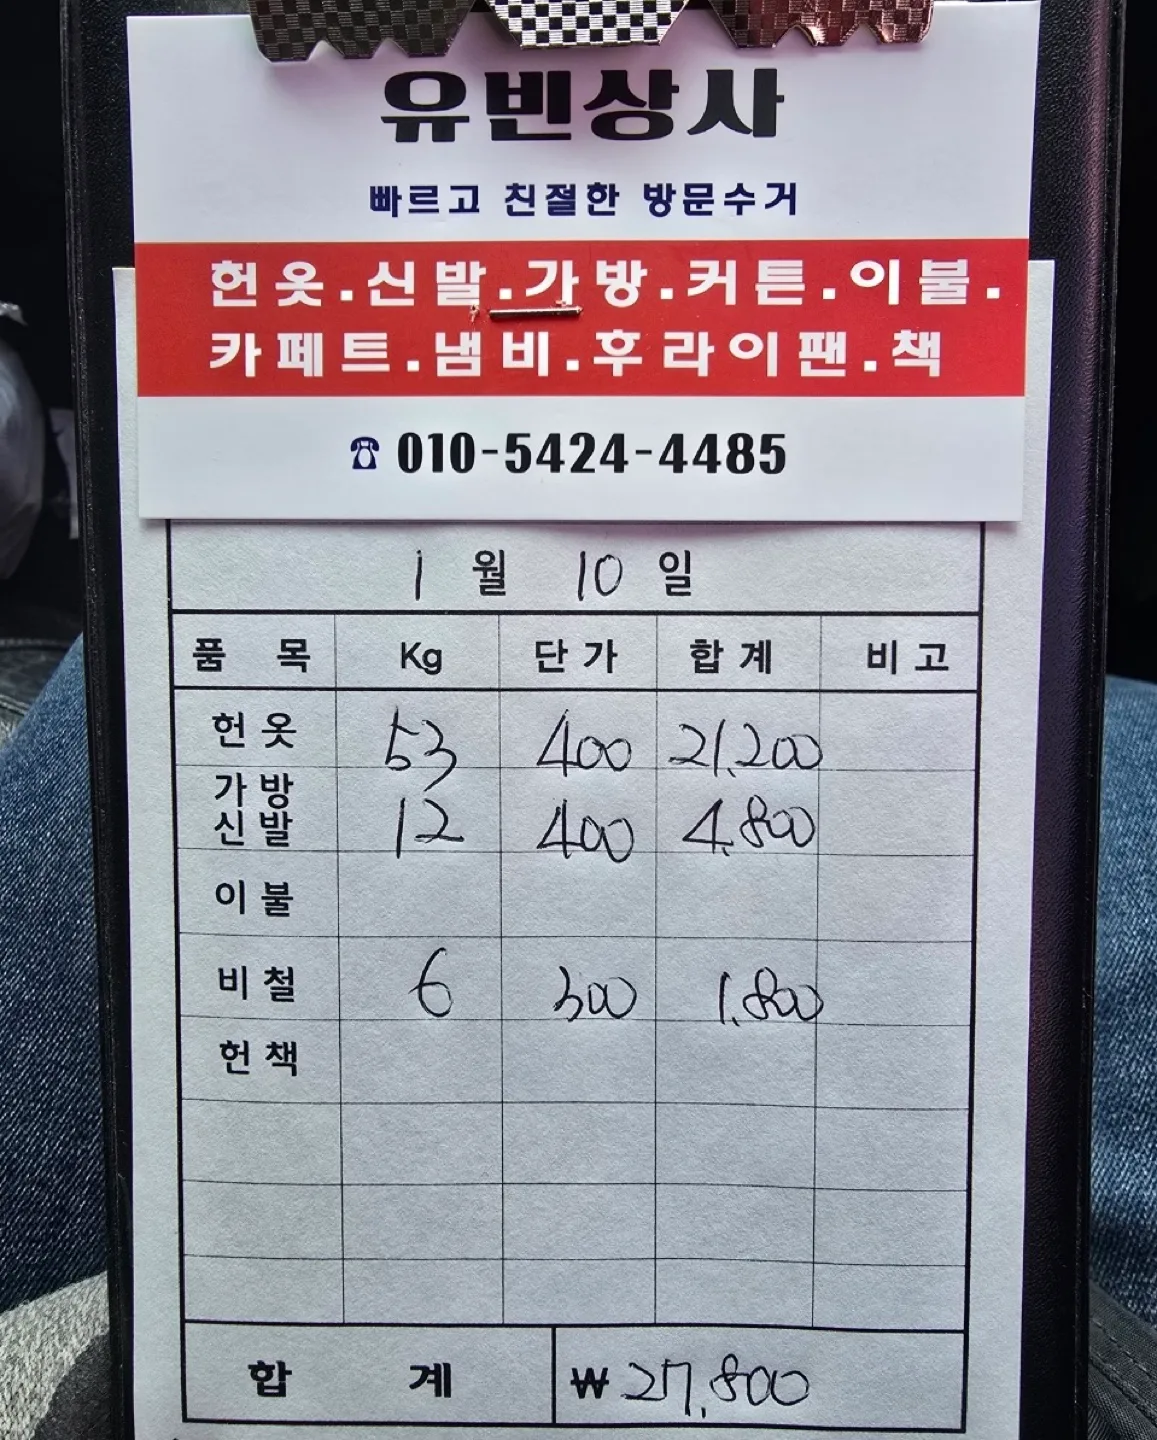 유빈상사
빠르고 친절한 방문수거
헌옷.신발.가방.커튼.이불.
카페트.냄비.후라이팬.책
☎ 010-5424-4485
1월 10일
품목 Kg 단가 합계 비고
헌옷 53 400 21,200
가방
신발 12 400 4,800
이불
비철 6 300 1,800
헌책
합계 ₩ 27,800